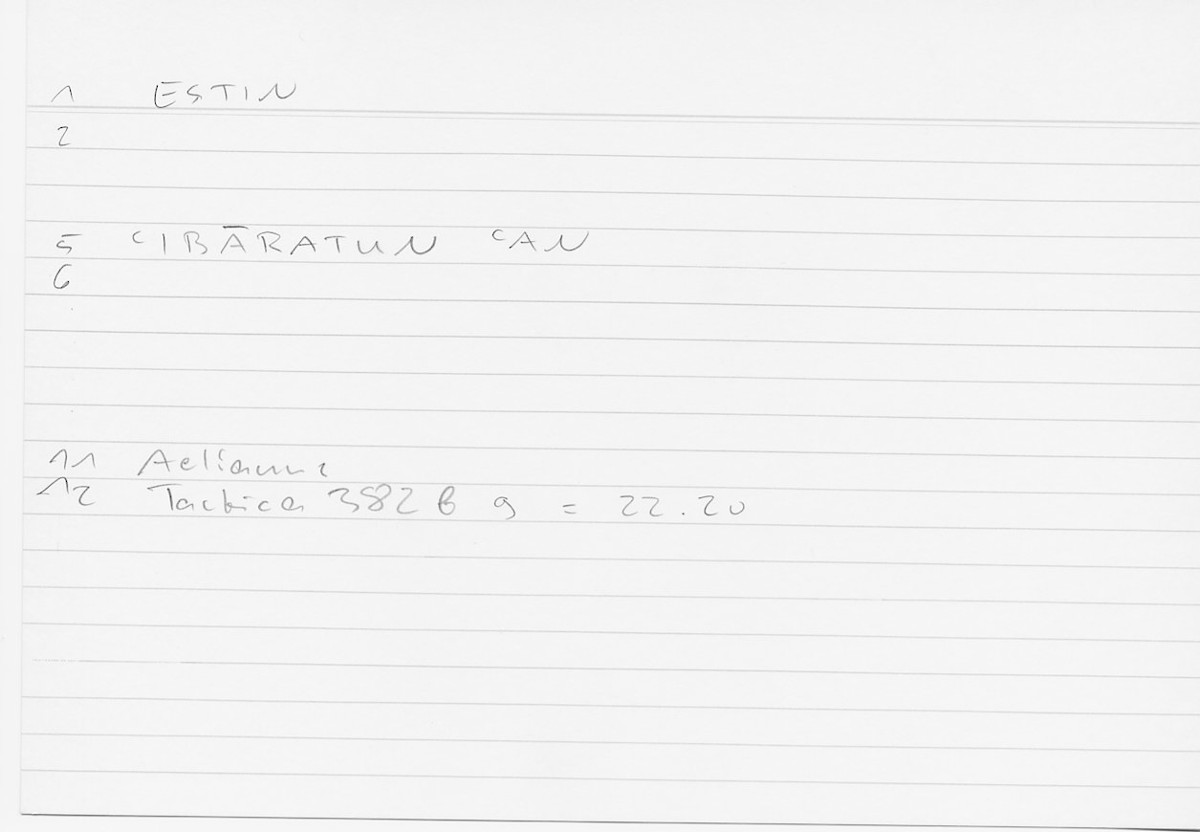 1 ESTIN
2
5 ʿIBĀRATUN ʿAN
6
11 Aelianus
12 Tactica 382 b 9 = 22.20